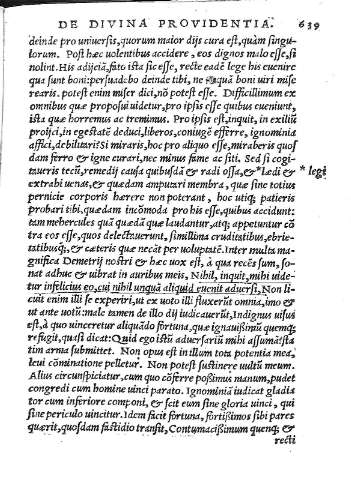 DE DIVINA PROVIDENTIA. 639
deinde pro uniuersis, quorum maior dijs cura est, quàm singu-
lorum. Post hæc uolentibus accidere, eos dignos malo esse, si
nolint. His adijciã, fato ista sic esse, recte eadẽ lege his euenire
qua sunt boni: persuadebo deinde tibi, ne unquã boni uiri mise
rearis. potest enim miser dici, nõ potest esse. Difficillimum ex
omnibus quæ proposui uidetur, pro ipsis esse quibus eueniunt,
ista quæ horremus ac tremimus. Pro ipsis est, inquit, in exiliũ
proijci, in egestatẽ deduci, liberos, coniugẽ efferre, ignominia
affici, debilitari? Si miraris, hoc pro aliquo esse, miraberis quos
dam ferro & igne curari, nec minus fame ac siti. Sed si cogi-
taueris tecũ, remedij causa quibusdã & radi ossa, & *lædi & * legi
extrahi uenas, & quædam amputari membra, quæ sine totius
pernicie corporis hærere non poterant, hoc utiq; patieris
probari tibi, quædam incõmoda pro his esse, quibus accidunt:
tam mehercules quã quædã quæ laudantur, atq; appetuntur cõ
tra eos esse, quos delectauerunt, simillima cruditatibus, ebrie-
tatibusq;, & cæteris quæ necãt per uoluptatẽ. Inter multa ma-
gnifica Demetrij nostri & hæc uox est, à qua recẽs sum, so-
nat adhuc & uibrat in auribus meis, Nihil, inquit, mihi uide-
tur infelicius eo, cui nihil unquã aliquid euenit aduersi. Non li-
cuit enim illi se experiri, ut ex uoto illi fluxerũt omnia, imo &
ut ante uotũ: male tamen de illo dij iudicauerũt, Indignus uisus
est, à quo uinceretur aliquãdo fortuna, quæ ignauissimũ quemq;
refugit, quasi dicat: Quid ego istũ aduersariũ mihi assumã? sta
tim arma submittet. Non opus est in illum tota potentia mea,
leui cõminatione pelletur. Non potest sustinere uultũ meum.
Alius circunspiciatur, cum quo cõferre possimus manum, pudet
congredi cum homine uinci parato. Ignominiã iudicat gladia
tor cum inferiore componi, & scit eum sine gloria uinci, qui
sine periculo uincitur. Idem facit fortuna, fortissimos sibi pares
quærit, quosdam fastidio transit, Contumacissimum quenq; &
recti